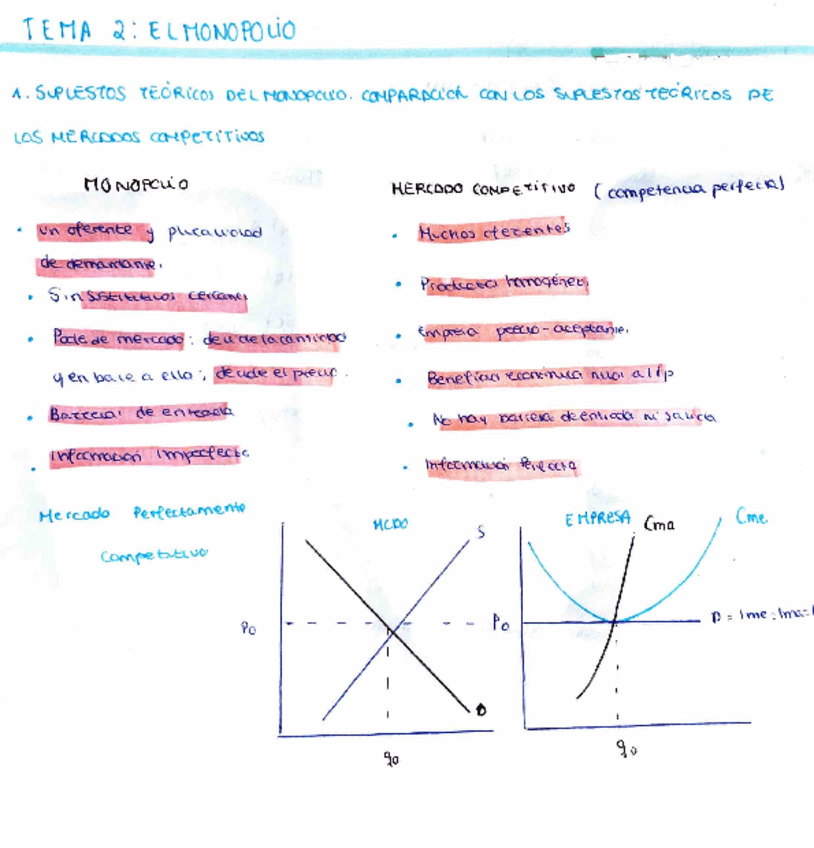 TEMA 2: EL MONOPOLIO
1. SUPUESTOS TEÓRICOS DEL MONOPOLIO. COMPARACIÓN CON LOS SUPUESTOS TEÓRICOS DE
LOS MERCADOS COMPETITIVOS
MONOPOLIO
• un oferente y pluralidad
de demandante.
• Sin sustitutivos cercanos
• Poder de mercado: decide la cantidad
y en base a ello, decide el precio.
• Barreras de entrada
• Información imperfecta
MERCADO COMPETITIVO (competencia perfecta)
• Muchos oferentes
• Productos homogéneos
• Empresa precio-aceptante.
• Beneficios económicos nulos a l/p
• No hay barreras de entrada ni salida
• Información Perfecta
Mercado Perfectamente
Competitivo
MCDO
S
P0
D
q0
EMPRESA
Cma
Cme
P0
P = Ime = Ima =
q0